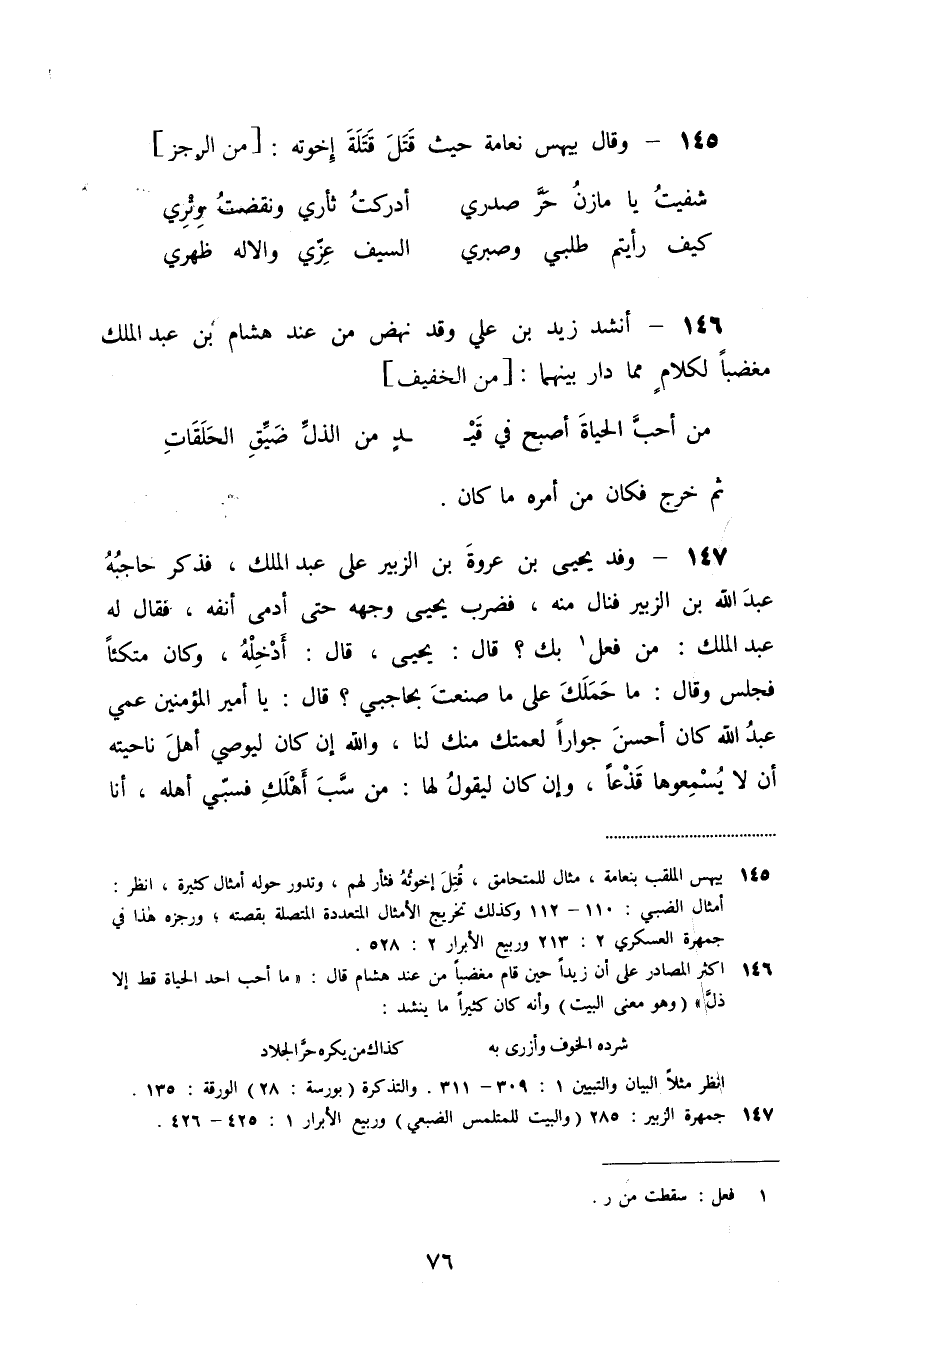 ١٤٥ – وقال بيهس نعامة حيث قَتَلَ قَتَلَةَ إخوته : [ من الرجز ]
شفيتُ يا مازنُ حَرَّ صدري أدركتُ ثأري ونقضتُ وِتْرِي
كيف رأيتم طلبي وصبري السيف عِزّي والاله ظهري
١٤٦ – أنشد زيد بن علي وقد نهض من عند هشام بن عبد الملك
مغضباً لكلامٍ مما دار بينهما : [ من الخفيف ]
من أحبَّ الحياةَ أصبح في قَيْـ ـدٍ من الذلِّ ضَيِّقِ الحَلَقَاتِ
ثم خرج فكان من أمره ما كان .
١٤٧ – وفد يحيى بن عروةَ بن الزبير على عبد الملك ، فذكر حاجبُهُ
عبدَ الله بن الزبير فنال منه ، فضرب يحيى وجهه حتى أدمى أنفه ، فقال له
عبد الملك : من فعل١ بك ؟ قال : يحيى ، قال : أَدْخِلْهُ ، وكان متكئاً
فجلس وقال : ما حَمَلَكَ على ما صنعتَ بحاجبي ؟ قال : يا أمير المؤمنين عمي
عبدُ الله كان أحسنَ جواراً لعمتك منك لنا ، والله إن كان ليوصي أهلَ ناحيته
أن لا يُسْمِعوها قَذْعاً ، وإن كان ليقولُ لها : من سَّبَ أَهْلَكِ فسبّي أهله ، أنا
١٤٥ بيهس الملقب بنعامة ، مثال للمتحامق ، قُتِلَ إخوتُهُ فثأر لهم ، وتدور حوله أمثال كثيرة ، انظر :
أمثال الضبي : ١١٠ – ١١٢ وكذلك تخريج الأمثال المتعددة المتصلة بقصته ؛ ورجزه هذا في
جمهرة العسكري ٢ : ٢١٣ وربيع الأبرار ٢ : ٥٢٨ .
١٤٦ اكثر المصادر على أن زيداً حين قام مغضباً من عند هشام قال : « ما أحب احد الحياة قط إلا
ذلَّ » ( وهو معنى البيت ) وأنه كان كثيراً ما ينشد :
شرده الخوف وأزرى به كذاك من يكره حرَّ الجلاد
انظر مثلاً البيان والتبيين ١ : ٣٠٩ – ٣١١ . والتذكرة ( بورسة : ٢٨ ) الورقة : ١٣٥ .
١٤٧ جمهرة الزبير : ٢٨٥ ( والبيت للمتلمس الضبعي ) وربيع الأبرار ١ : ٤٢٥ – ٤٢٦ .
١ فعل : سقطت من ر .
٧٦